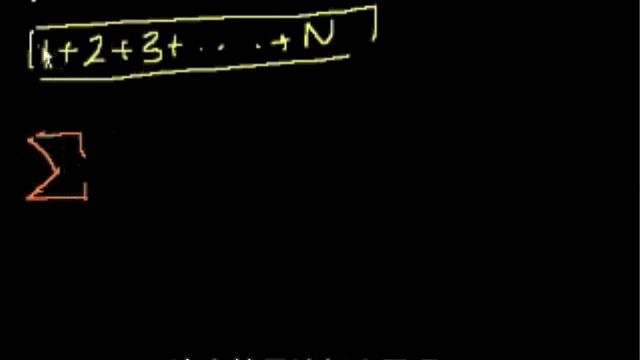 1+2+3+ · · · + N
Σ